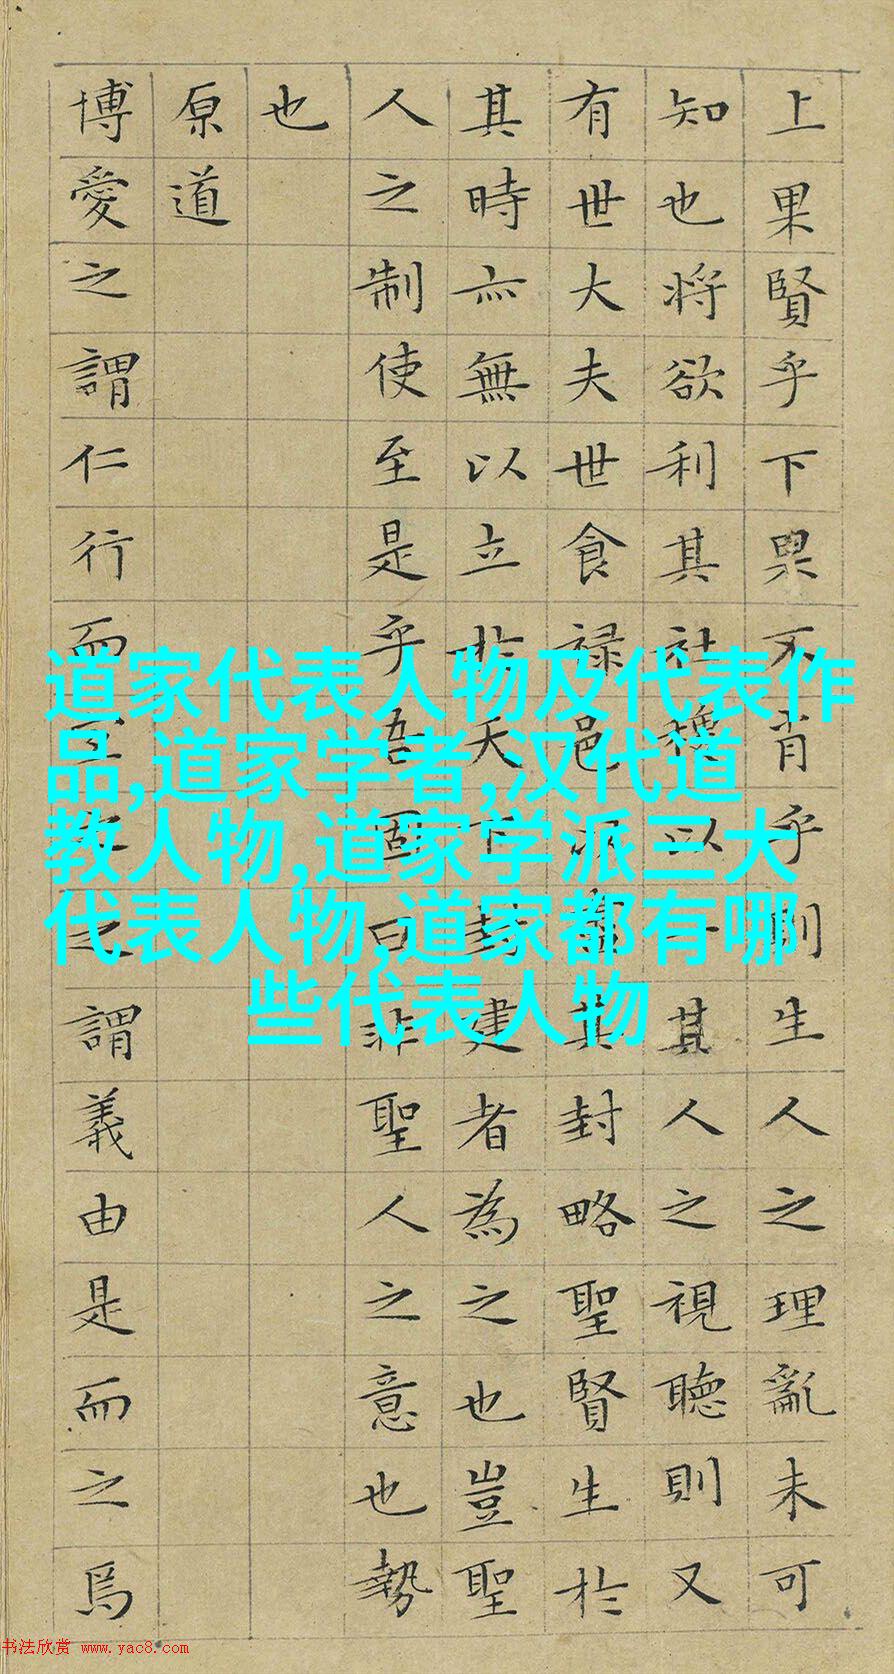 道家代表人物及代表作
品,道家学者,汉代道
教人物,道家学派三大
代表人物,道家都有哪
些代表人物
上果賢乎下果不肖乎則生人之理亂未可
知也將欲利其社稷以一其人之視聽則又
有世大夫世食禄邑以盡其封略聖賢生於
其時亦無以立於天下封建者為之也豈聖
人之制使至是乎吾固曰非聖人之意也勢
也
原道
博愛之謂仁行而宜之之謂義由是而之焉
书法欣赏 www.yac8.com